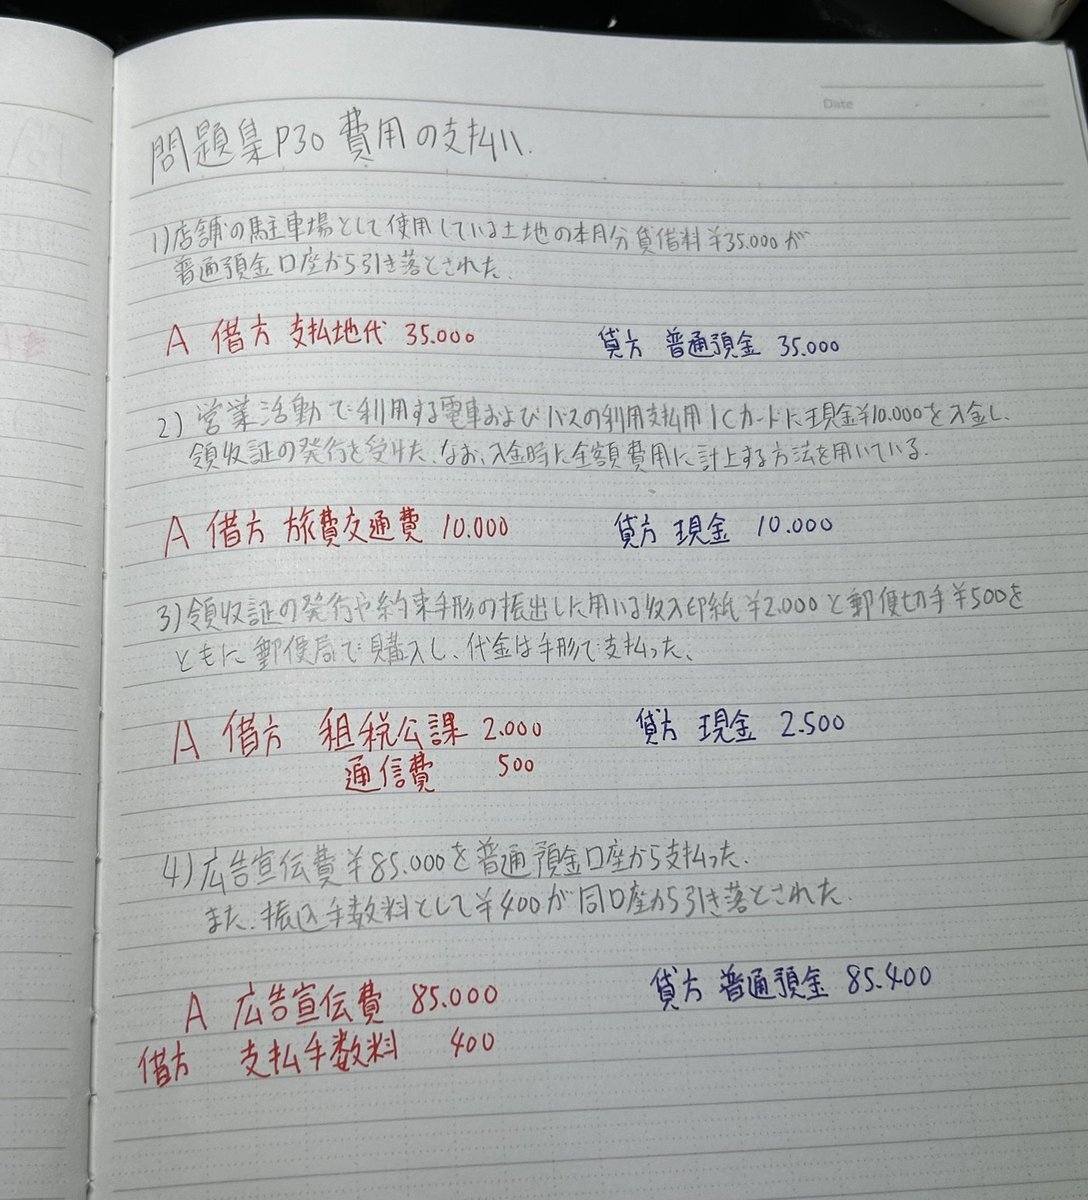 Date
問題集P30 費用の支払い.
1)店舗の駐車場として使用している土地の本月分賃借料¥35.000が
普通預金口座から引き落とされた.
A 借方 支払地代 35.000 貸方 普通預金 35.000
2) 営業活動で利用する電車およびバスの利用支払用ICカードに現金¥10.000を入金し、
領収証の発行を受けた、なお、入金時に全額費用に計上する方法を用いている.
A 借方 旅費交通費 10.000 貸方 現金 10.000
3)領収証の発行や約束手形の振出しに用いる収入印紙¥2.000と郵便切手¥500を
ともに郵便局で購入し、代金は手形で支払った、
A 借方 租税公課 2.000 貸方 現金 2.500
通信費 500
4)広告宣伝費¥85.000を普通預金口座から支払った.
また、振込手数料として¥400が同口座から引き落とされた.
A 広告宣伝費 85.000 貸方 普通預金 85.400
借方 支払手数料 400